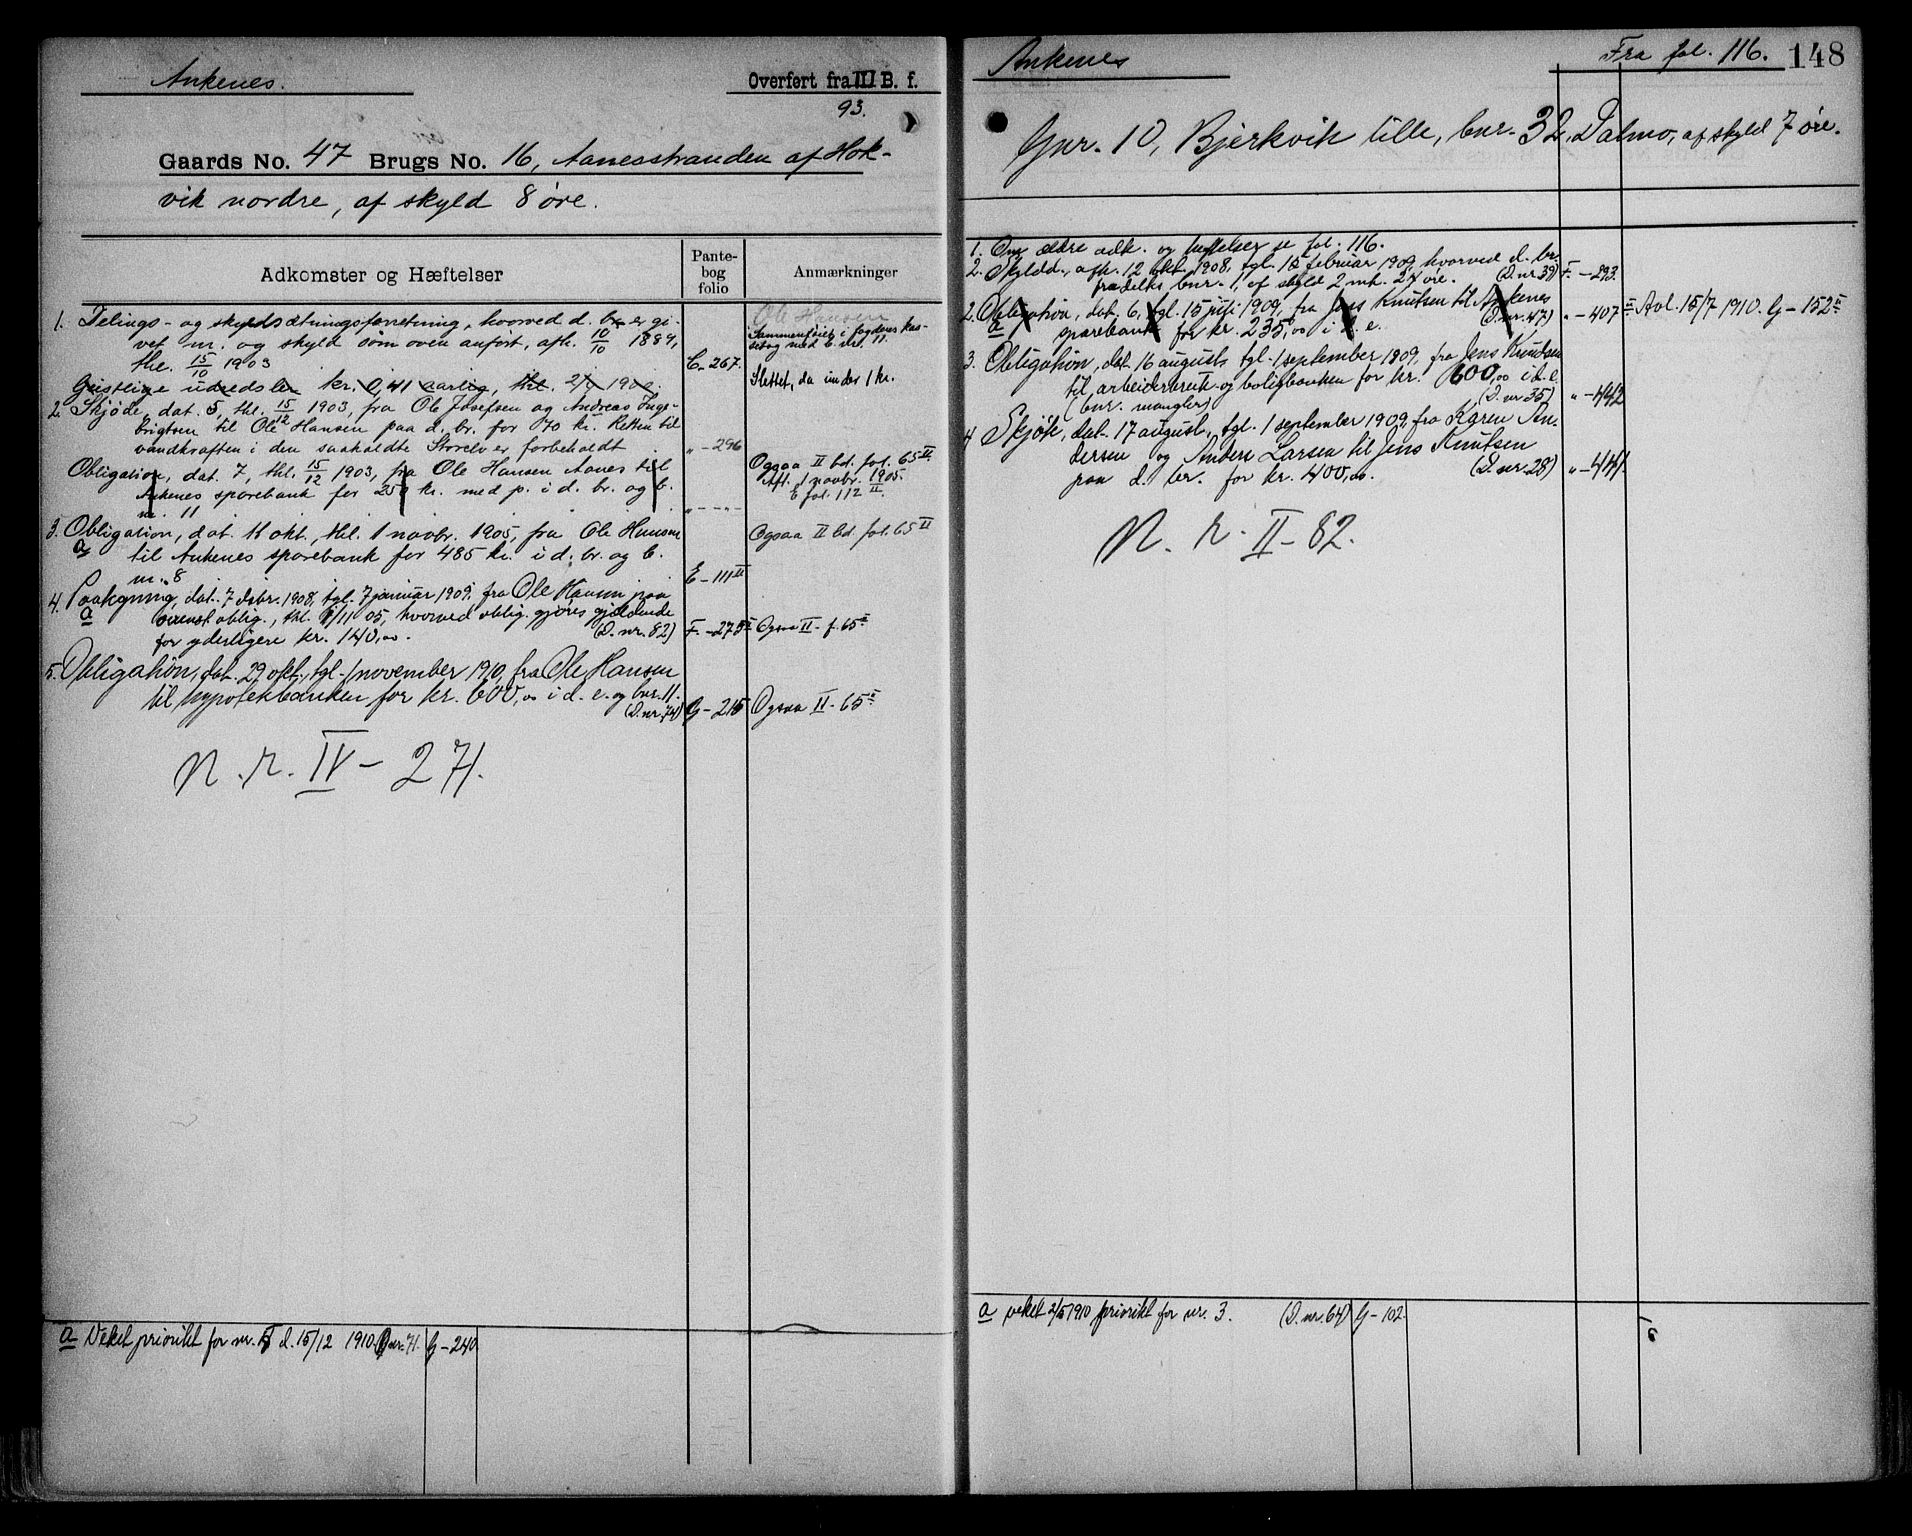 Ankenes.
Overført fra III B. f.
93.
Gaards No. 47 Brugs No. 16, Aanesstranden af Hok-
vik nordre, af skyld 8 øre.
Adkomster og Hæftelser
Pante-
bog
folio
Anmærkninger
Ole Hansen
1. Delings- og skyldsætningsforretning, hvorved d. br. er gi-
vet nr. og skyld som oven anført, afh. 10/10 1889,
thl. 15/10 1903
C-267.
Sammenføiet i fogdens kas-
sebog med b. nr. 11.
Geistlige udredsler kr. 0,41 aarlig, thl.
Slettet, da under 1 kr.
2. Skjøde, dat. 5, thl. 15/12 1903, fra Ole Josefsen og Andreas Inge-
brigtsen til Ole Hansen paa d. br. for 70 kr. Retten til
vandkraften i den saakaldte Storelv er forbeholdt
"-296
Obligation, dat. 7, thl. 15/12 1903, fra Ole Hansen Aanes til
Ankenes sparebank for 250 kr. med p. i d. br. og b.
nr. 11
"-"-"-
Ogsaa II bd. fol. 65 II.
Afl. 1 novbr. 1905.
E fol. 112 II.
3. Obligation, dat. 11 okt, thl. 1 novbr. 1905, fra Ole Hansen
a til Ankenes sparebank for 485 kr. i d. br. og b.
nr. 8
E-111 II
Ogsaa II bd. fol. 65 II
4. Paategning, dat. 7 dsbr. 1908, tgl. 7 januar 1909, fra Ole Hansen paa
a ovenst. oblig., thl. 1/11 05, hvorved oblig. gjøres gjældende
for yderligere kr. 140,00. (D. nr. 82)
F.-275 II
Ogsaa II-f. 65 II
5. Obligation, dat. 29 okt., tgl. 1 november 1910, fra Ole Hansen
til hypotekbanken for kr. 600,00 i d. e. og bnr. 11.
(D. nr. 74)
G-215
Ogsaa II-65 II
N. r. IV-271.
a Veket prioritet for nr. 5 d. 15/12 1910. Dnr. 71.
G-240
Ankenes
Fra fol. 116.
148
Gnr. 10, Bjerkvik lille, bnr. 32, Dalmo, af skyld 7 øre.
1. Om ældre adk. og heftelser se fol. 116.
2. Skyldd., afh. 12 okt. 1908, tgl. 15 februar 1909, hvorved d. br.
fradelts bnr. 1, af skyld 2 mk. 27 øre. (D. nr. 39)
F.-293.
2. Obligation, dat. 6, tgl. 15 juli 1909, fra Jens Knutsen til Ankenes
a sparebank for kr. 235,00 i d. e. (D. nr. 47)
"-407 II
Avl. 15/7 1910. G-152 II
3. Obligation, dat. 16 august, tgl. 1 september 1909, fra Jens Knudsen
til arbeiderbruk- og boligbanken for kr. 600,00 i d. e.
(bnr. mangler) (D. nr. 35)
"-442
4 Skjøte, dat. 17 august, tgl. 1 september 1909, fra Karen An-
dersen og Anders Larsen til Jens Knutsen
paa d. br. for kr. 400,00. (D. nr. 28)
"-441.
N. r. II-82.
a veket 2/5 1910 prioritet for nr. 3. (D. nr. 64)
G-102.